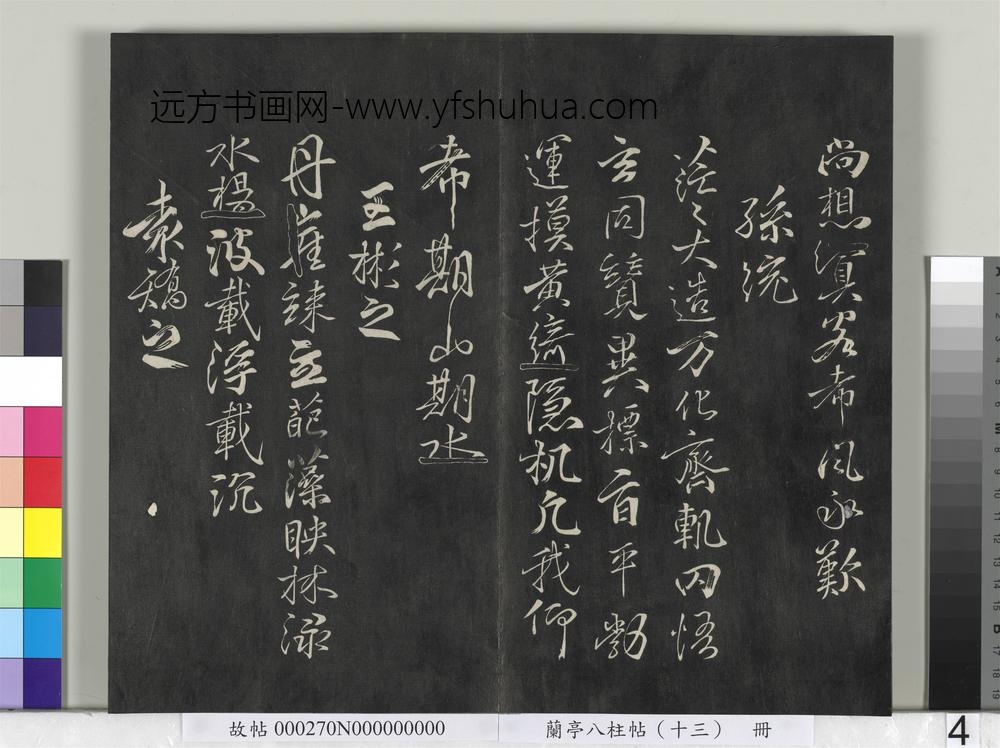 远方书画网-www.yfshuhua.com
尚想溟客希風永歎
孫統
茫々大造万化齊軌罔悟
玄同競異標旨平勃
運摸黃綺隱机凡我仰
希期山期水
王彬之
丹崖竦立葩藻映林淥
水楊波載浮載沉
袁嶠之
故帖 000270N000000000
蘭亭八柱帖（十三） 冊
4